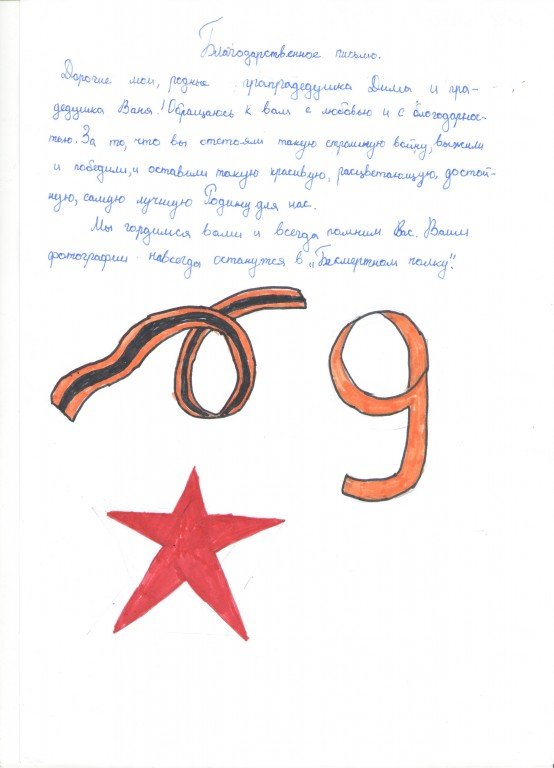 Благодарственное письмо.
Дорогие мои, родные прапрадедушка Дима и пра-
дедушка Ваня! Обращаюсь к вам с любовью и с благодарнос-
тью. За то, что вы отстояли такую страшную войну, выжили
и победили, и оставили такую красивую, расцветающую, достой-
ную, самую лучшую Родину для нас.
Мы гордимся вами и всегда помним Вас. Ваши
фотографии навсегда останутся в „Бесмертном полку".
9